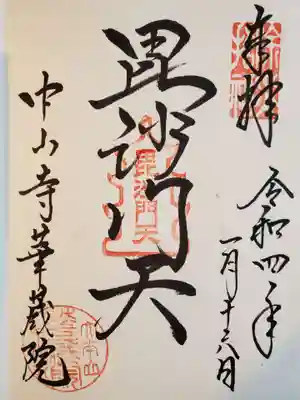 奉拝
令和四年
一月十六日
毘沙門天
毘沙門天
中山寺華蔵院